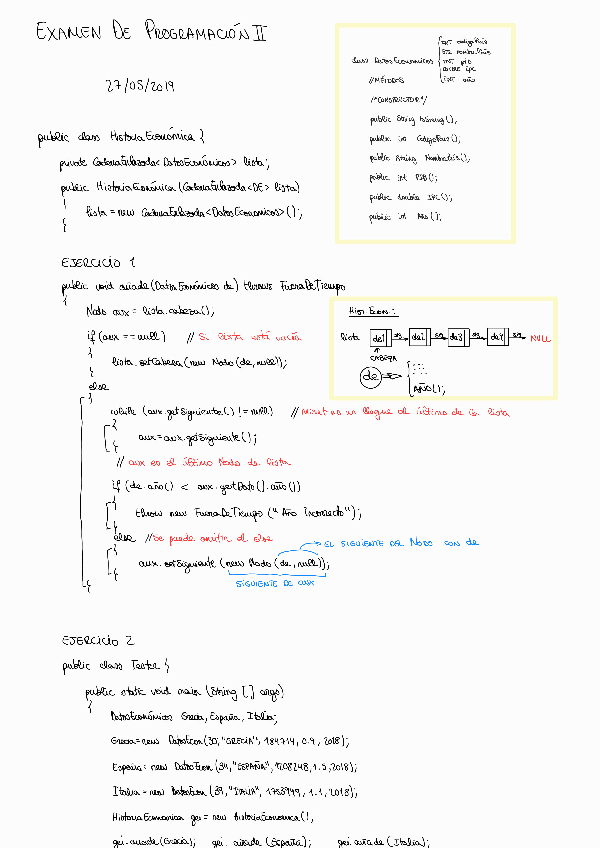 EXAMEN DE PROGRAMACIÓN II
27/05/2019
class DatosEconomicos
INT codigoPais
STR nombrePais
INT pib
DOUBLE ipc
INT año
//MÉTODOS
/*CONSTRUCTOR*/
public String toString();
public int CodigoPais();
public String NombrePais();
public int PIB();
public double IPC();
public int Año();
public class HistoriaEconómica {
private CadenaEnlazada<DatosEconómicos> lista;
public HistoriaEconómica (CadenaEnlazada<DE> lista)
{
lista = new CadenaEnlazada<DatosEconomicos>();
}
EJERCICIO 1
public void añade (DatosEconómicos de) throws FueraDeTiempo
{
Nodo aux = lista.cabeza();
if (aux == null) // Si lista está vacía
{
lista.setCabeza (new Nodo (de, null));
}
else
{
while (aux.getSiguiente() != null) //mientras no llegue al último de la lista
{
aux = aux.getSiguiente();
}
// aux es el último Nodo de lista
if (de.año() < aux.getDato().año())
{
throw new FueraDeTiempo ("Año Incorrecto");
}
else //Se puede omitir el else
{
aux.setSiguiente (new Nodo (de, null));
}
}
EL SIGUIENTE DEL NODO CON de
SIGUIENTE DE aux
Hist Econ:
lista de1 sig de2 sig de3 sig de4 sig NULL
CABEZA
de
AÑO();
EJERCICIO 2
public class Tester {
public static void main (String [] args)
{
DatosEconómicos Grecia, España, Italia;
Grecia = new DatosEcon (30, "GRECIA", 184714, 0.9, 2018);
España = new DatosEcon (34, "ESPAÑA", 1208248, 1.5, 2018);
Italia = new DatosEcon (39, "ITALIA", 1753949, 1.1, 2018);
HistoriaEconomica gei = new HistoriaEconomica();
gei.añade (Grecia); gei.añade (España); gei.añade (Italia);